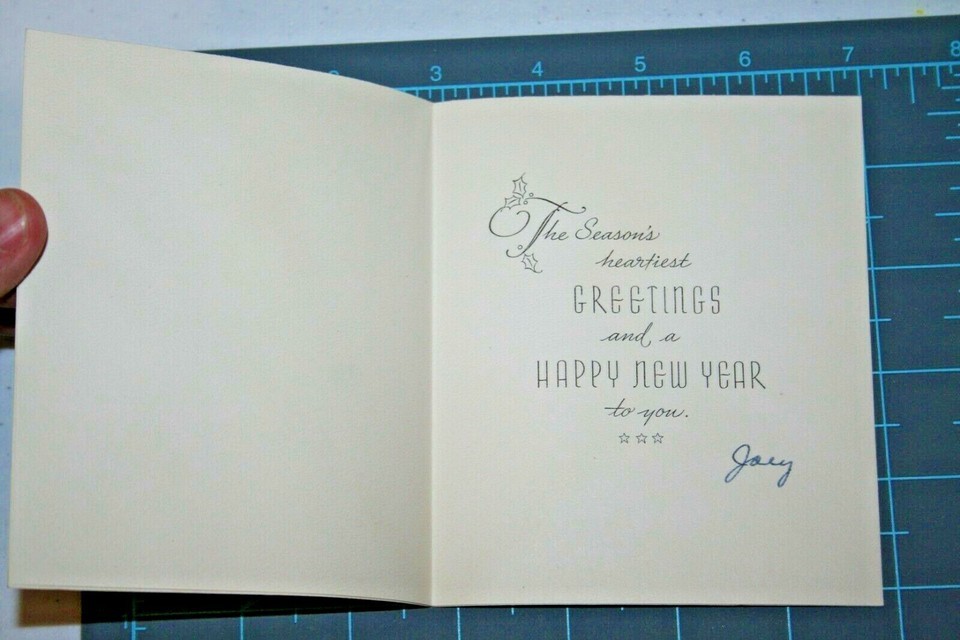 2 3 4 5 6 7 8
The Season's
heartiest
GREETINGS
and a
HAPPY NEW YEAR
to you.
☆☆☆
Joey